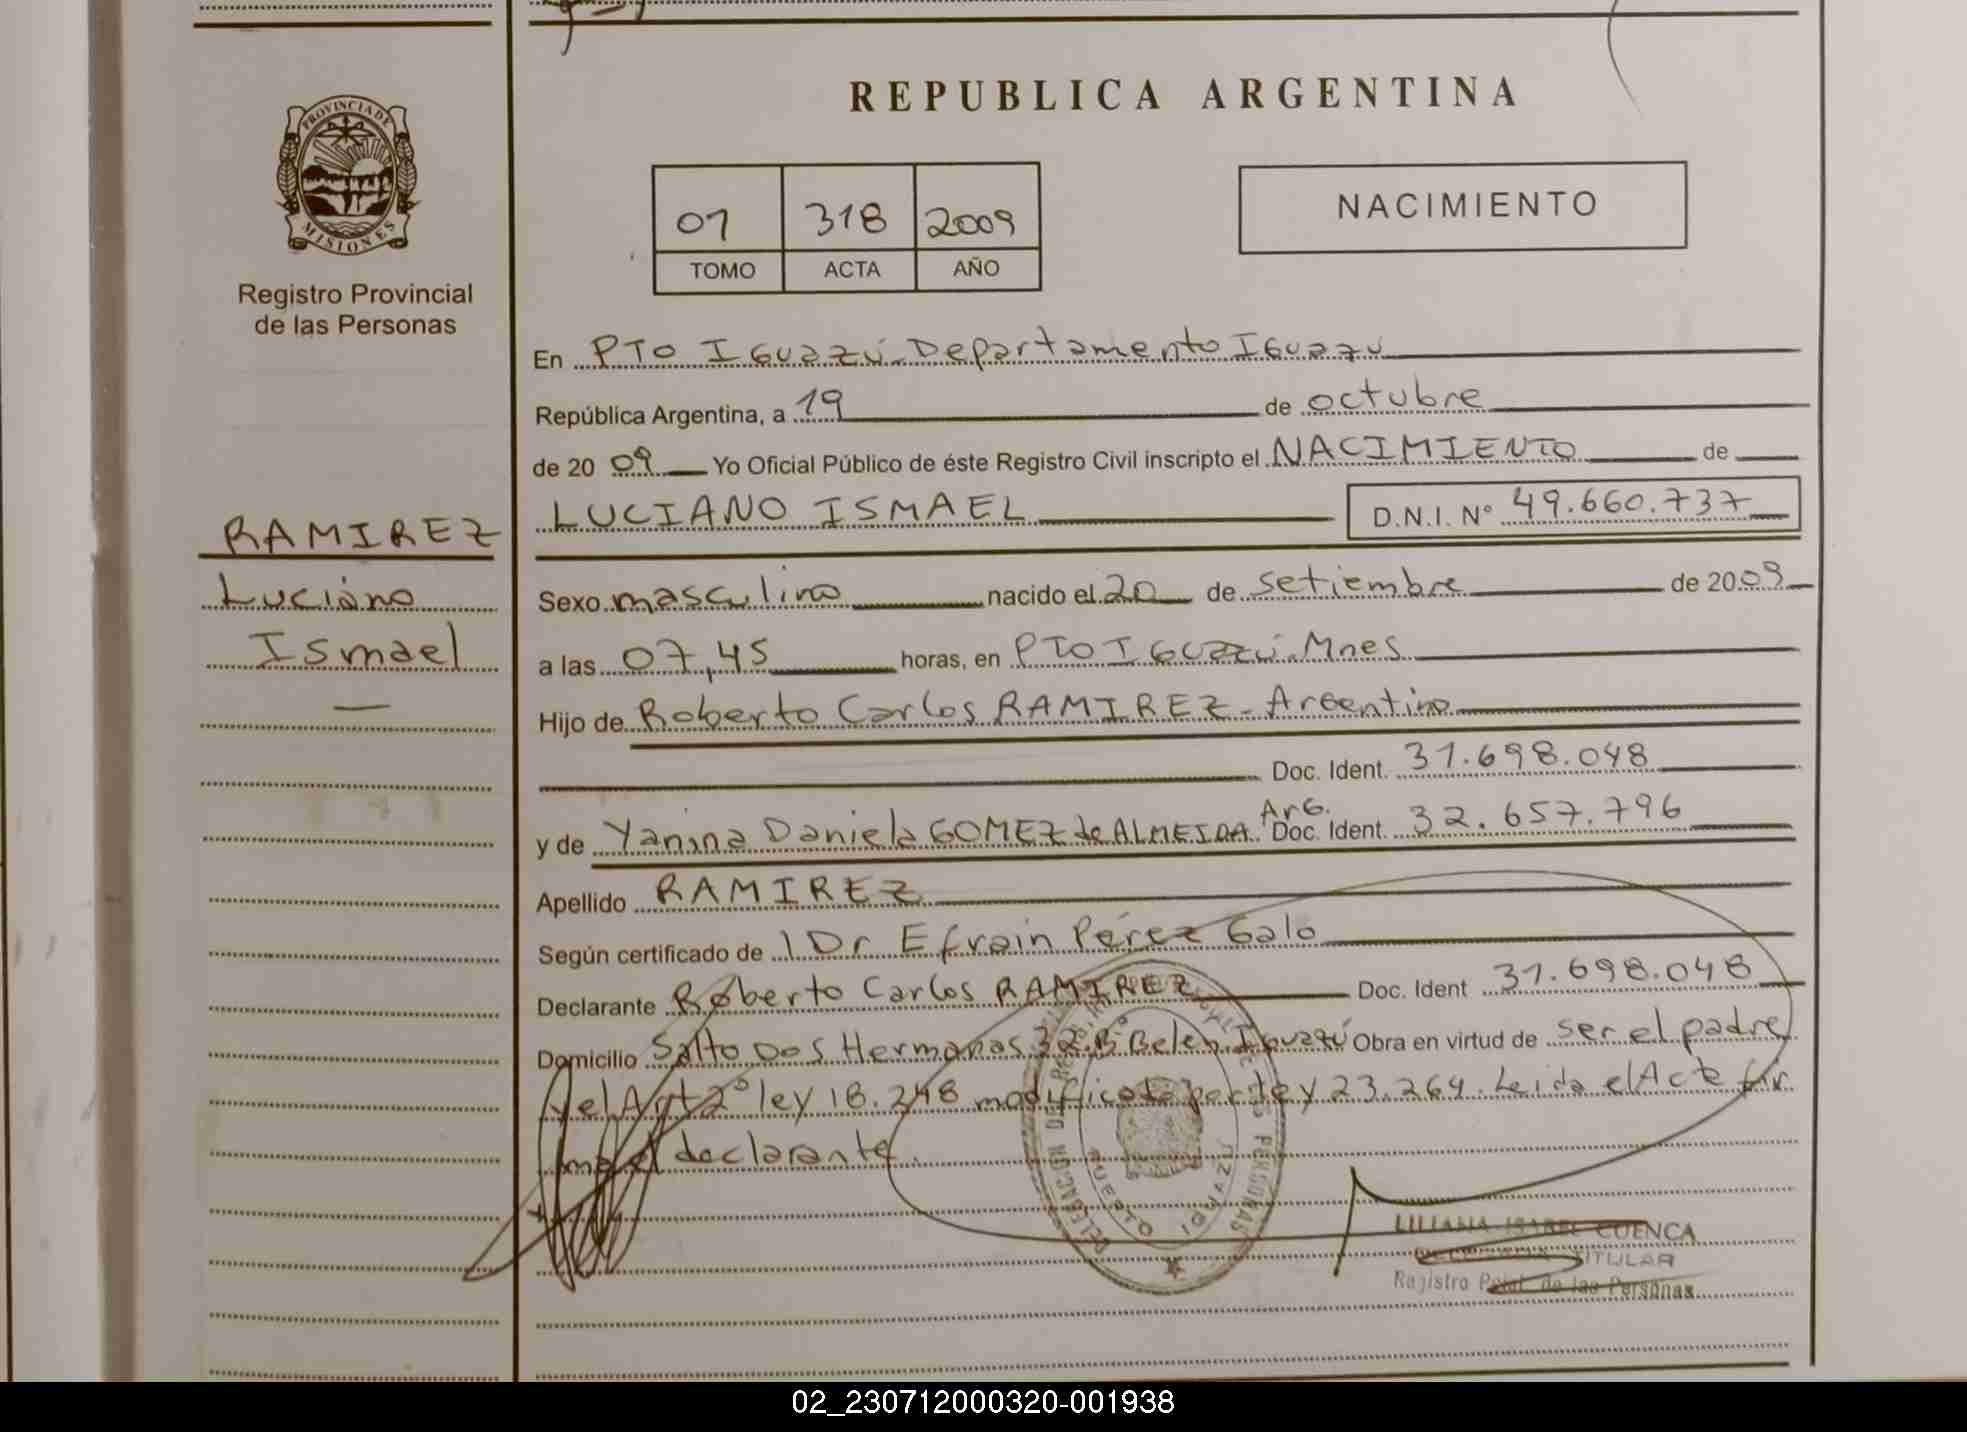 REPUBLICA ARGENTINA
PROVINCIA DE
MISIONES
Registro Provincial
de las Personas
01 318 2009
TOMO ACTA AÑO
NACIMIENTO
RAMIREZ
Luciano
Ismael
En PTO IGuazú. Departamento IGuazu
República Argentina, a 19 de octubre
de 20 09 Yo Oficial Público de éste Registro Civil inscripto el NACIMIENTO de
LUCIANO ISMAEL D.N.I. Nº 49.660.737
Sexo masculino nacido el 20 de setiembre de 20 09
a las 07,45 horas, en PTO IGuazú. Mnes
Hijo de Roberto Carlos RAMIREZ - Argentino
Doc. Ident. 31.698.048
y de Yanina Daniela GOMEZ de ALMEIDA. ArG. Doc. Ident. 32.657.796
Apellido RAMIREZ
Según certificado de l Dr Efrain Pérez Galo
Declarante Roberto Carlos RAMIREZ Doc. Ident 31.698.048
Domicilio Salto Dos Hermanas 32 Bº Belen IGuazú Obra en virtud de ser el padre
y el Art 2º ley 18.248 modificata por ley 23.264. Leida el Acta fir
ma el declarante.
DELEGACION
PERSONAS
PUERTO IGUAZU
LILIANA ISABEL CUENCA
TITULAR
Registro Pcial. de las Personas
02_230712000320-001938